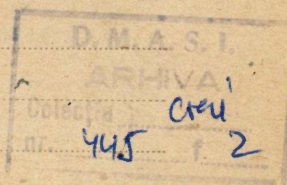 D. M. A. S. I.
ARHIVA
Colecția Creri
nr. 445 f. 2